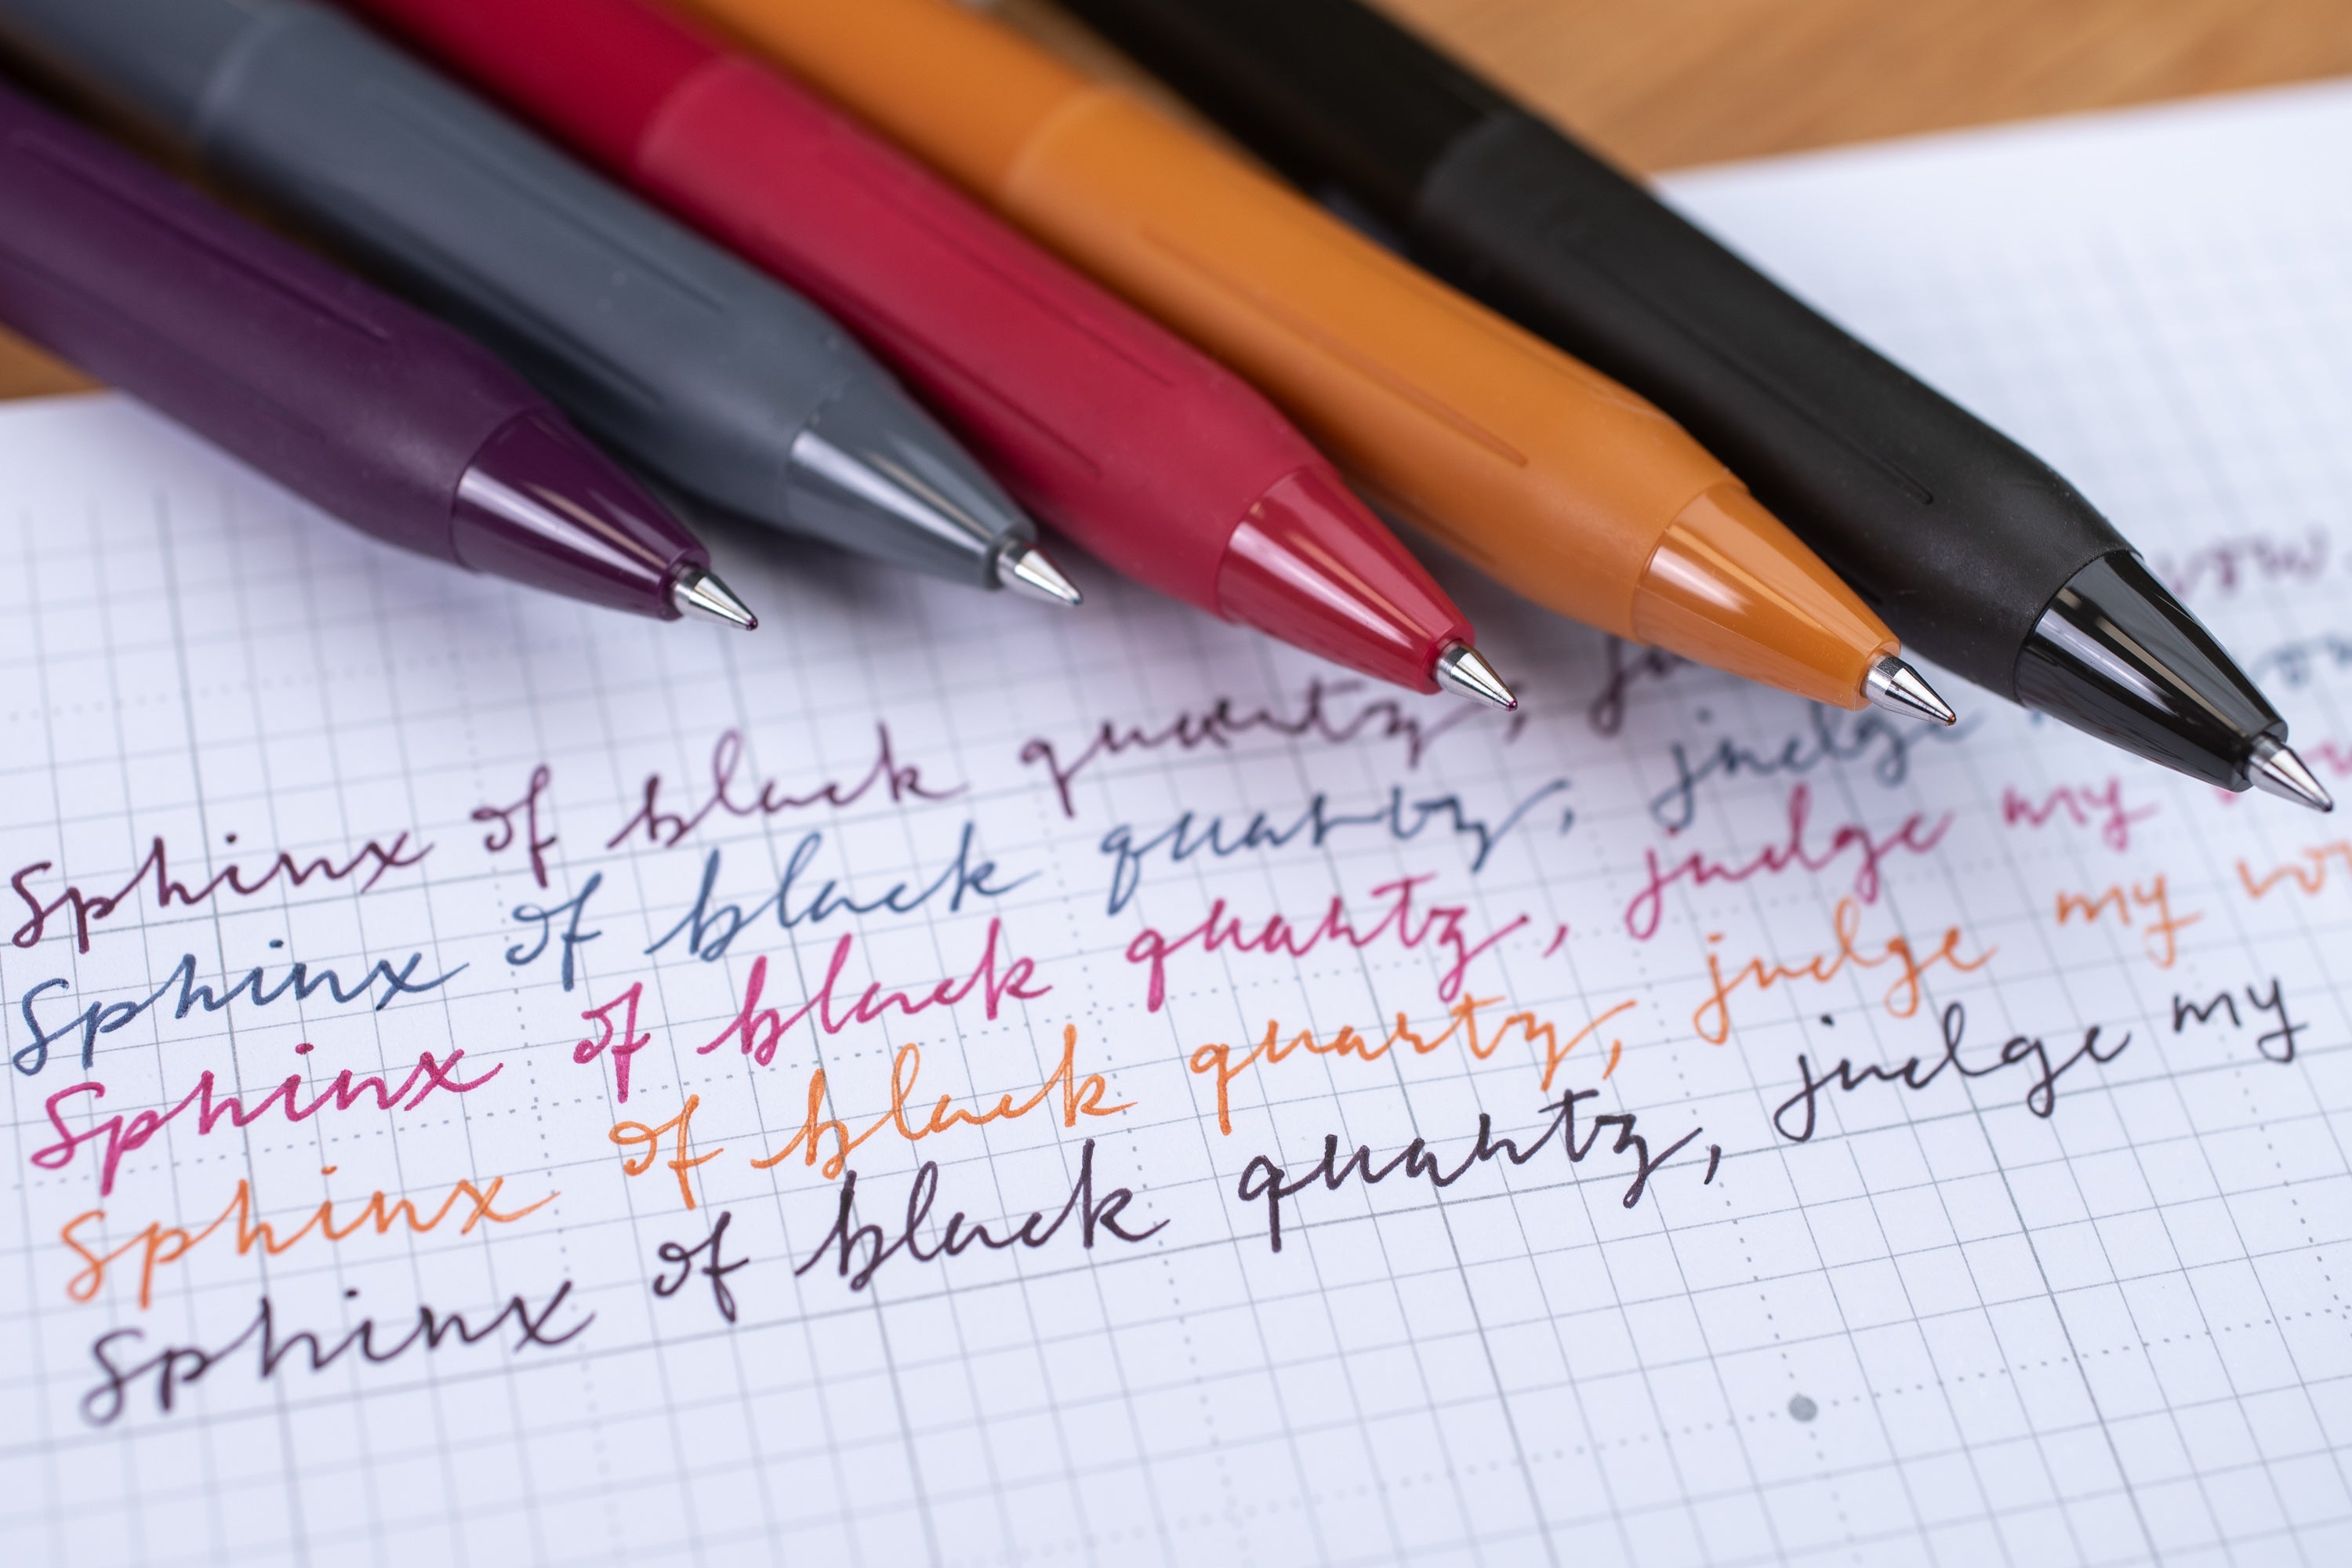 Sphinx of black quartz, vow
Sphinx of black quartz, judge
Sphinx of black quartz, judge my
Sphinx of black quartz, judge my
Sphinx of black quartz, judge my